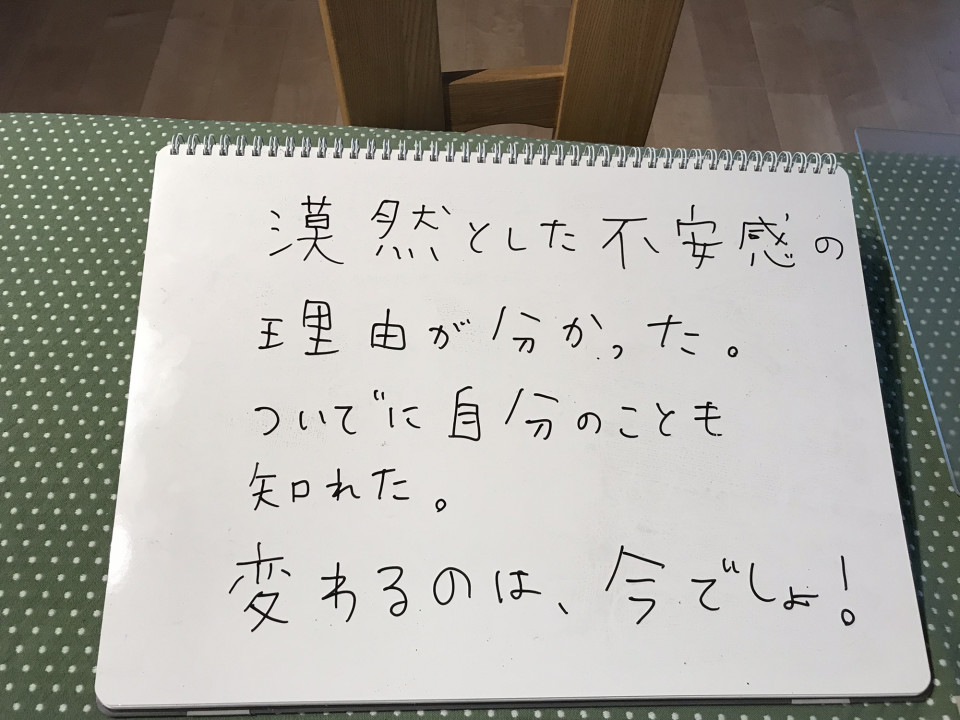 漠然とした不安感の
理由が分かった。
ついでに自分のことも
知れた。
変わるのは、今でしょ!